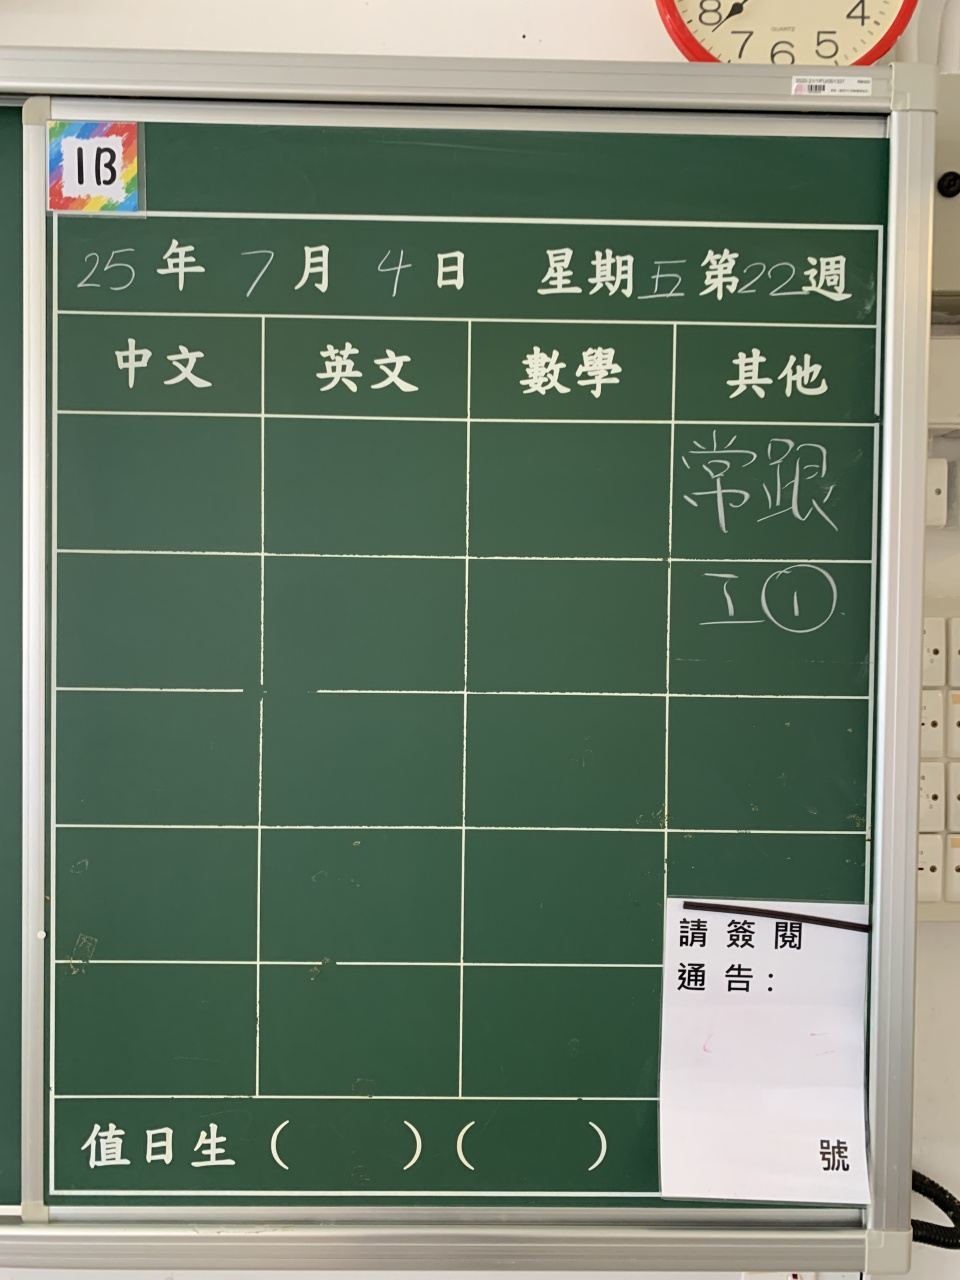 8 7 6 5 4
QUARTZ
1B
25年7月4日 星期五第22週
中文 英文 數學 其他
常跟
工①
請簽閱
通告：
號
值日生（ ）（ ）